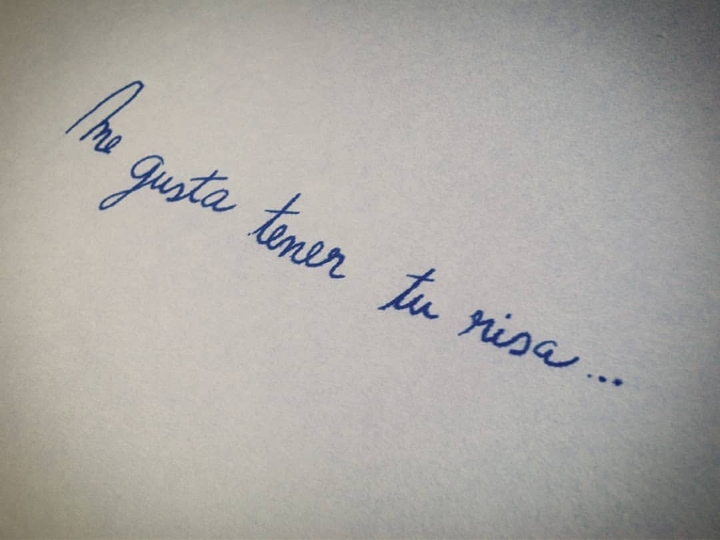 Me gusta tener tu risa...